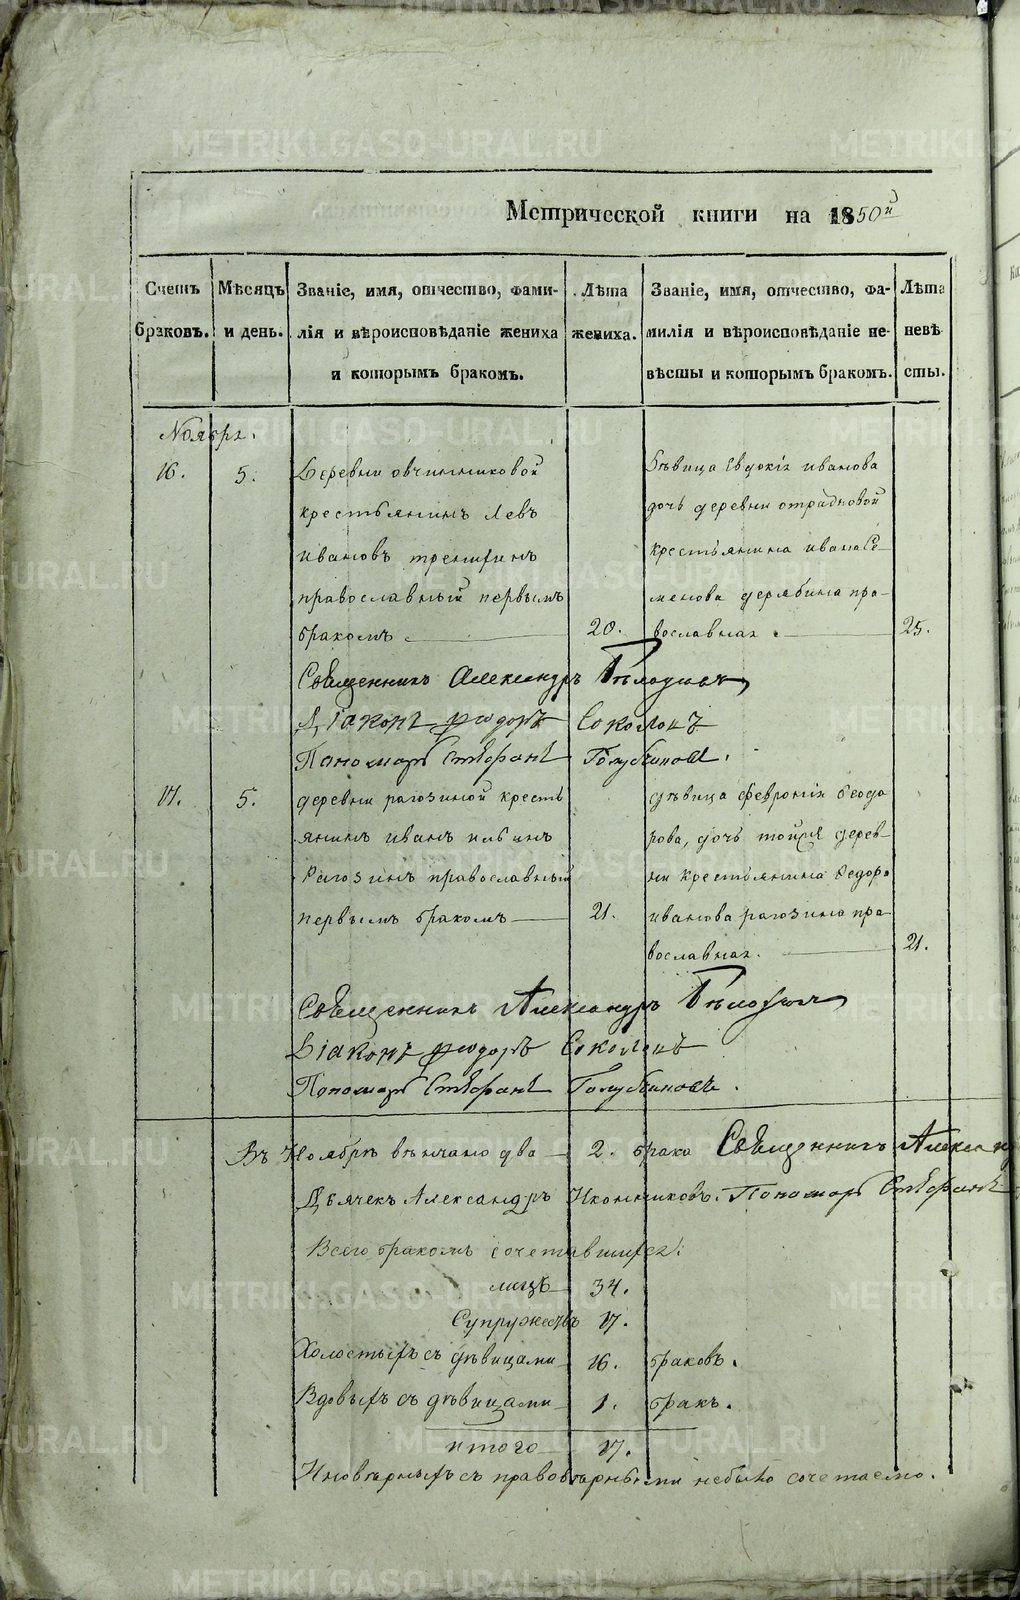 Метрической книги на 1850й
Счетъ браковъ.
Мѣсяцъ и день.
Званіе, имя, отчество, фами-
лія и вѣроисповѣданіе жениха
и которымъ бракомъ.
Лѣта жениха.
Званіе, имя, отчество, фа-
милія и вѣроисповѣданіе не-
вѣсты и которымъ бракомъ.
Лѣта невѣсты.
Ноябрь.
16.
5.
Деревни овчинниковой
крестьянинъ Левъ
ивановъ
православный первымъ
бракомъ
20.
Дѣвица Евдокія иванова
дочь деревни отрадновой
крестьянина ивана Се-
менова дерябина пра-
вославная.
25.
Священникъ Александръ
Діаконъ Феодоръ Соколовъ
Пономарь Стефанъ Голубчиковъ.
17.
5.
деревни рагозиной кресть
янинъ иванъ ильинъ
Рагозинъ православный
первымъ бракомъ
21.
дѣвица Феврония Феодо
рова, дочь тойже дерев-
ни крестьянина Федора
иванова рагозина пра-
вославная.
21.
Священникъ Александръ
Діаконъ Феодоръ Соколовъ
Пономарь Стефанъ Голубчиковъ.
Въ Ноябрѣ вѣнчано два 2. брака Священникъ Александръ
Дьячекъ Александръ Иконниковъ. Пономарь Стефанъ
Всего бракомъ сочетавшихся:
лицъ 34.
Супружествъ 17.
Холостыхъ съ дѣвицами 16. браковъ.
Вдовыхъ съ дѣвицами 1. бракъ.
итого 17.
Иновѣрныхъ съ правовѣрными небыло сочетаемо.
METRIKI.GASO-URAL.RU